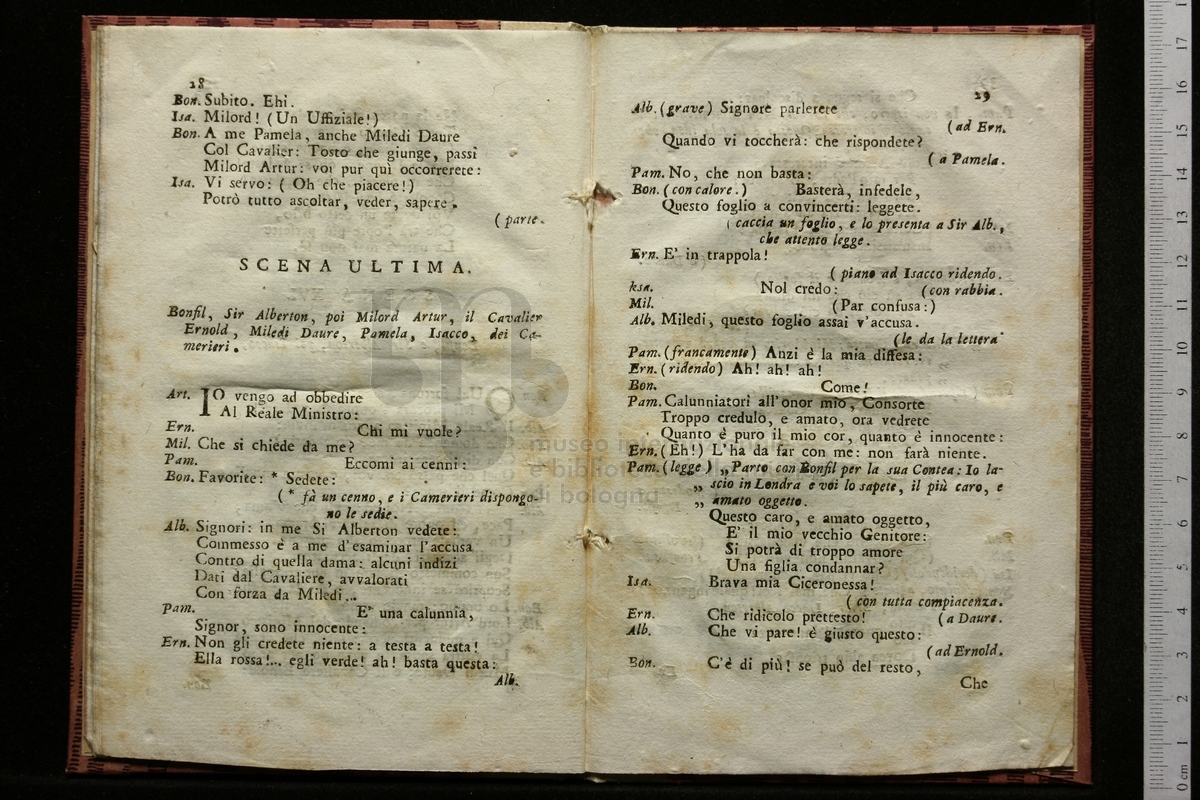 28
Bon. Subito. Ehi.
Isa. Milord! (Un Uffiziale!)
Bon. A me Pamela, anche Miledi Daure
Col Cavalier: Tosto che giunge, passi
Milord Artur: voi pur qui occorrerete:
Isa. Vi servo: ( Oh che piacere!)
Potrò tutto ascoltar, veder, sapere.
( parte.
SCENA ULTIMA.
Bonfil, Sir Alberton, poi Milord Artur, il Cavalier
Ernold, Miledi Daure, Pamela, Isacco, dei Ca-
merieri.
Art. IO vengo ad obbedire
Al Reale Ministro:
Ern. Chi mi vuole?
Mil. Che si chiede da me?
Pam. Eccomi ai cenni:
Bon. Favorite: * Sedete:
( * fà un cenno, e i Camerieri dispongo-
no le sedie.
Alb. Signori: in me Si Alberton vedete:
Commesso è a me d'esaminar l'accusa
Contro di quella dama: alcuni indizi
Dati dal Cavaliere, avvalorati
Con forza da Miledi...
Pam. E' una calunnia,
Signor, sono innocente:
Ern. Non gli credete niente: a testa a testa!
Ella rossa!... egli verde! ah! basta questa:
Alb.
29
Alb. (grave) Signore parlerete
(ad Ern.
Quando vi toccherà: che rispondete?
( a Pamela.
Pam. No, che non basta:
Bon. (con calore.) Basterà, infedele,
Questo foglio a convincerti: leggete.
( caccia un foglio, e lo presenta a Sir Alb.,
che attento legge.
Ern. E' in trappola!
( piano ad Isacco ridendo.
Isa. Nol credo: (con rabbia.
Mil. (Par confusa:)
Alb. Miledi, questo foglio assai v'accusa.
(le da la lettera
Pam. (francamente) Anzi è la mia diffesa:
Ern. (ridendo) Ah! ah! ah!
Bon. Come!
Pam. Calunniatori all'onor mio, Consorte
Troppo credulo, e amato, ora vedrete
Quanto è puro il mio cor, quanto è innocente:
Ern. (Eh!) L'ha da far con me: non farà niente.
Pam. (legge) „Parto con Bonfil per la sua Contea: Io la-
„ scio in Londra e voi lo sapete, il più caro, e
„ amato oggetto.
Questo caro, e amato oggetto,
E' il mio vecchio Genitore:
Si potrà di troppo amore
Una figlia condannar?
Isa. Brava mia Ciceronessa!
( con tutta compiacenza.
Ern. Che ridicolo prettesto! (a Daure.
Alb. Che vi pare! è giusto questo:
(ad Ernold.
Bon. C'è di più! se può del resto,
Che
museo
e biblio
di bologna
0 cm 1 2 3 4 5 6 7 8 9 10 11 12 13 14 15 16 17